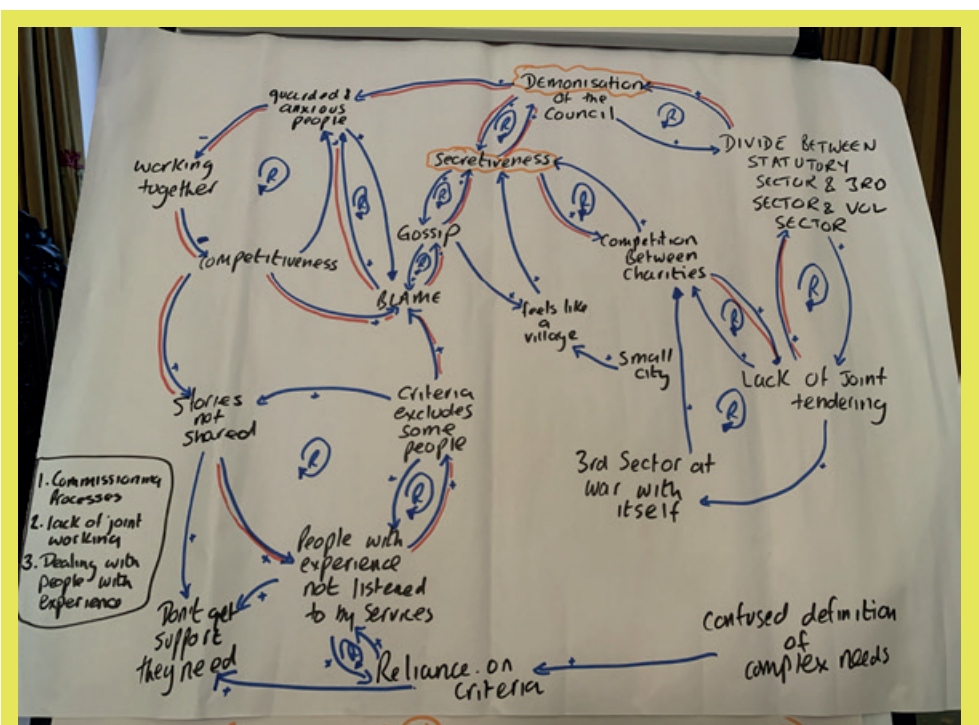 DEMONISATION
OF the
COUNCIL
guarded &
anxious
people
DIVIDE BETWEEN
STATUTORY
SECTOR & 3RD
SECTOR & VOL
SECTOR
Secretiveness
working
together
GOSSIP
Competition
Between
Charities
Competitiveness
BLAME
feels like
a
village
Small
city
Lack of Joint
tendering
Stories
not
shared
Criteria
excludes
some
people
3rd Sector at
war with
itself
1. Commissioning
Processes
2. lack of joint
working
3. Dealing with
people with
experience
People with
experience
not listened
to by services
Don't get
support
they need
Reliance on
criteria
Confused definition
of
complex needs
R
R
R
R
R
R
R
R
R
R